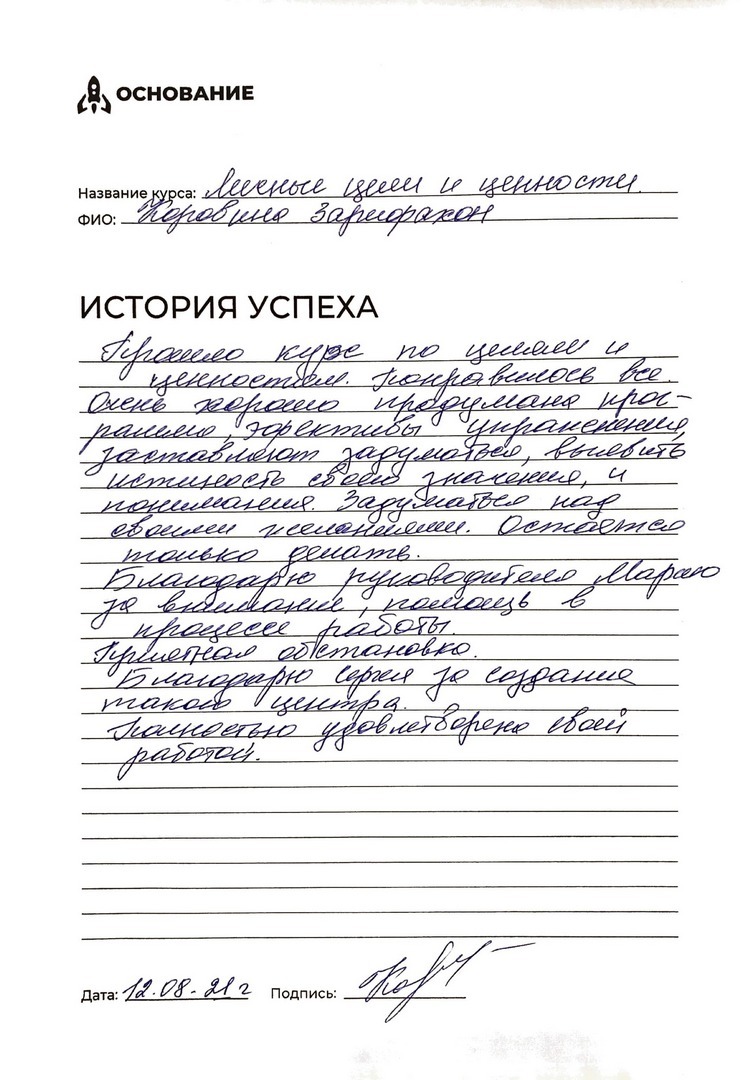 ОСНОВАНИЕ
Название курса: Личные цели и ценности.
ФИО: Коровина Зарифахон
ИСТОРИЯ УСПЕХА
Прошла курс по целям и
ценностям. Понравилось все.
Очень хорошо продумана прог-
рамма, эфективы упражнения,
заставляют задуматься, выевить
истиность своего значения, и
понимания. Задуматься над
своими желаниями. Остается
только делать.
Благодарю руководителя Марию
за внимание, помощь в
процессе работы.
Приятная обстановка.
Благодарю Сергея за создание
такого центра.
Полностью удовлетворена своей
работой.
Дата: 12.08.21 г Подпись: